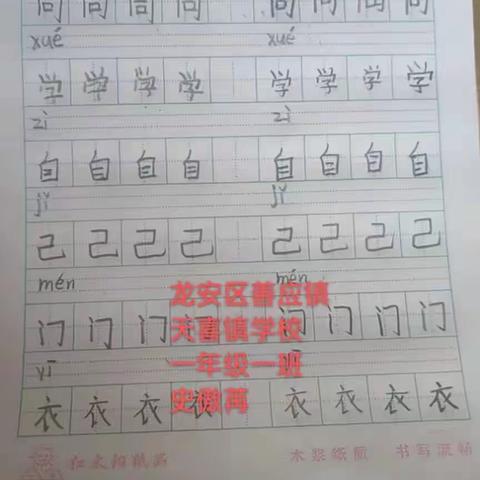 同 同 同 同 同 同 同 同
xué xué
学 学 学 学 学 学 学 学
zì zì
自 自 自 自 自 自 自 自
jǐ jǐ
己 己 己 己 己 己 己 己
mén mén
门 门 门 门 门 门 门 门
yī
衣 衣 衣 衣 衣 衣 衣 衣
龙安区善应镇
天喜镇学校
一年级一班
红太阳纸品 木浆纸质 书写流畅